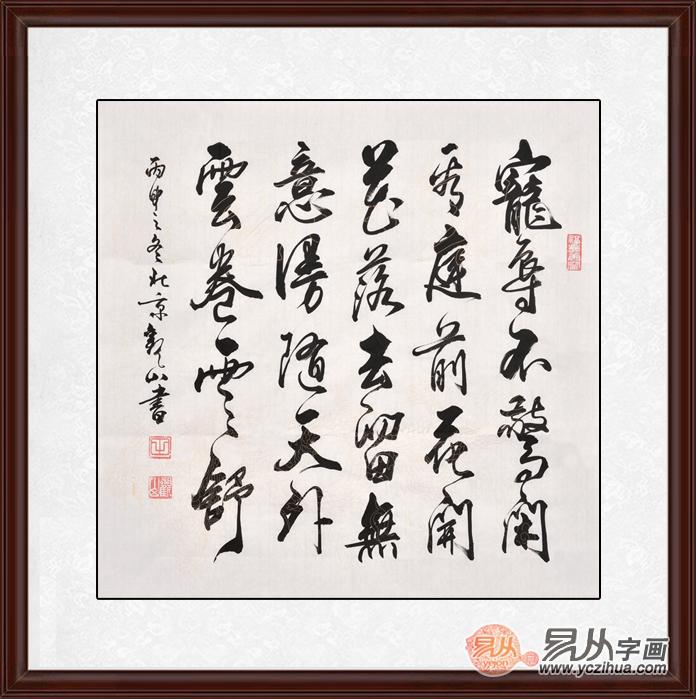 寵辱不驚閑
看庭前花開
花落去留無
意漫随天外
雲卷雲舒
丙申之冬北京觀山書
易从字画
www.yczihua.com